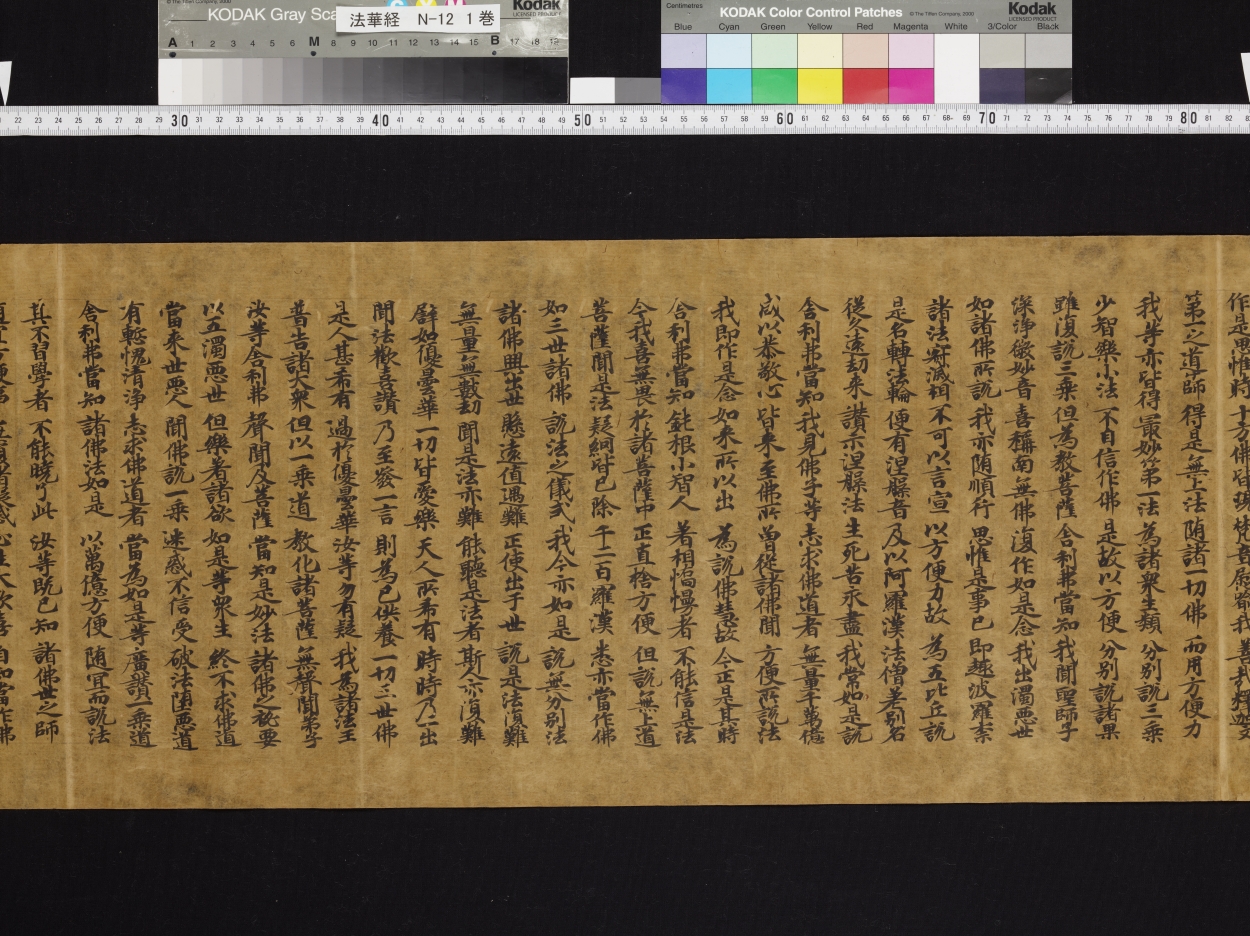 © The Tiffen Company, 2000
KODAK Gray Sca
法華経 N-12 1巻
Kodak
LICENSED PRODUCT
A 1 2 3 4 5 6 M 8 9 10 11 12 13 14 15 B 17 18 19
Centimetres
KODAK Color Control Patches
© The Tiffen Company, 2000
Kodak
LICENSED PRODUCT
Blue Cyan Green Yellow Red Magenta White 3/Color Black
22 23 24 25 26 27 28 29 30 31 32 33 34 35 36 37 38 39 40 41 42 43 44 45 46 47 48 49 50 51 52 53 54 55 56 57 58 59 60 61 62 63 64 65 66 67 68 69 70 71 72 73 74 75 76 77 78 79 80 81 82
作是思惟時 十方佛皆現 梵音慰喻我 善哉釋迦文
第一之道師 得是無上法 随諸一切佛 而用方便力
我等亦皆得 最妙第一法 為諸衆生類 分別説三乗
少智樂小法 不自信作佛 是故以方便 分別説諸果
雖復説三乗 但為教菩薩 舎利弗當知 我聞聖師子
深浄微妙音 喜稱南無佛 復作如是念 我出濁惡世
如諸佛所説 我亦随順行 思惟是事已 即趣波羅柰
諸法寂滅相 不可以言宣 以方便力故 為五比丘説
是名轉法輪 便有涅槃音 及以阿羅漢 法僧差別名
従久遠劫来 讃示涅槃法 生死苦永盡 我常如是説
舎利弗當知 我見佛子等 志求佛道者 無量千萬億
咸以恭敬心 皆来至佛所 曽従諸佛聞 方便所説法
我即作是念 如来所以出 為説佛慧故 今正是其時
舎利弗當知 鈍根小智人 著相憍慢者 不能信是法
今我喜無畏 於諸菩薩中 正直捨方便 但説無上道
菩薩聞是法 疑網皆已除 千二百羅漢 悉亦當作佛
如三世諸佛 説法之儀式 我今亦如是 説無分別法
諸佛興出世 懸遠値遇難 正使出于世 説是法復難
無量無數劫 聞是法亦難 能聴是法者 斯人亦復難
譬如優曇華 一切皆愛樂 天人所希有 時時乃一出
聞法歡喜讃 乃至發一言 則為已供養 一切三世佛
是人甚希有 過於優曇華 汝等勿有疑 我為諸法王
普告諸大衆 但以一乗道 教化諸菩薩 無聲聞弟子
汝等舎利弗 聲聞及菩薩 當知是妙法 諸佛之秘要
以五濁惡世 但樂著諸欲 如是等衆生 終不求佛道
當来世惡人 聞佛説一乗 迷惑不信受 破法堕惡道
有慙愧清浄 志求佛道者 當為如是等 廣讃一乗道
舎利弗當知 諸佛法如是 以萬億方便 随宜而説法
其不習學者 不能曉了此 汝等既已知 諸佛世之師